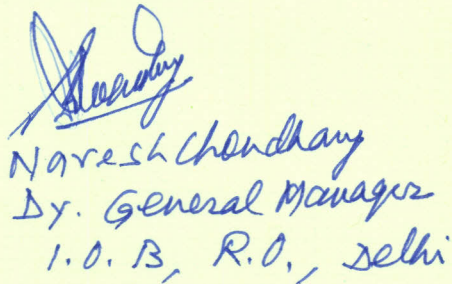 Naresh Choudhary
Dy. General Manager
I.O.B, R.O., Delhi